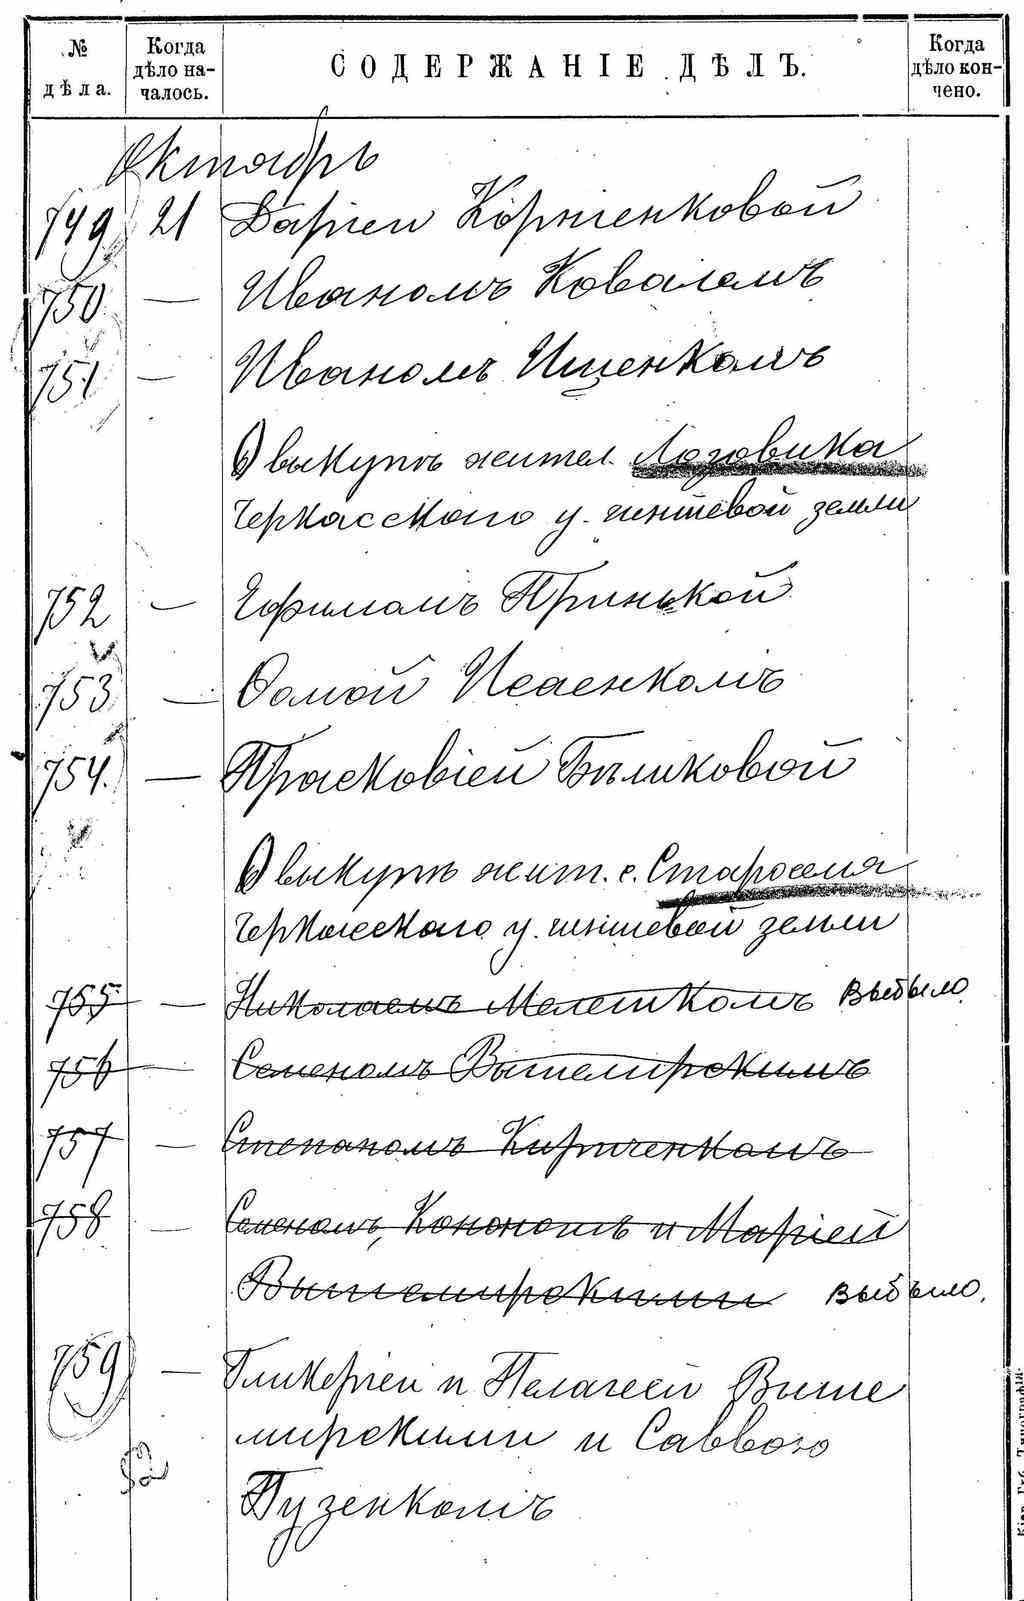 № дѣла.
Когда дѣло началось.
СОДЕРЖАНІЕ ДѢЛЪ.
Когда дѣло кончено.
Октябрь
749 21 Даріей Корніенковой
750 — Иваномъ Ковалемъ
751 — Иваномъ Ищенкомъ
О выкупѣ жител. Лозовика
Черкасского у. чиншевой земли
752 — Ефимомъ Принькой
753 — Ѳомой Исаенкомъ
754. — Прасковіей Бѣликовой
О выкупѣ жит. с. Староселя
Черкасского у. чиншевой земли
755 — Николаемъ Мелешкомъ выбыло.
756 — Семеномъ Вышемирскимъ
757 — Степаномъ Кириченкомъ
758 — Семеномъ, Конономъ и Маріей
Вышемирскими выбыло.
759 — Гликеріей и Пелагеей Выше
мирскими и Саввою
Пузенкомъ
Кіев. Губ. Типографія.